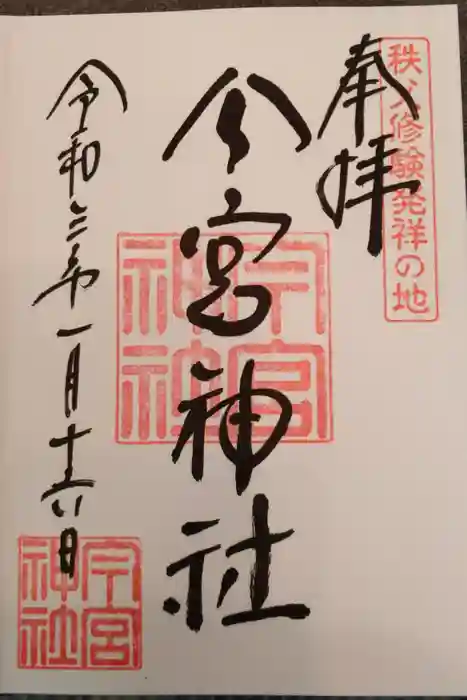 秩父修験発祥の地
奉拝
今宮神社
今宮
神社
令和三年一月十六日
今宮
神社